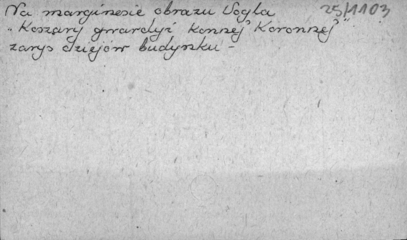 Na marginesie obrazu Vogla 25/1103
"Koszary gwardyi konnej Koronnej"
zarys dziejów budynku -